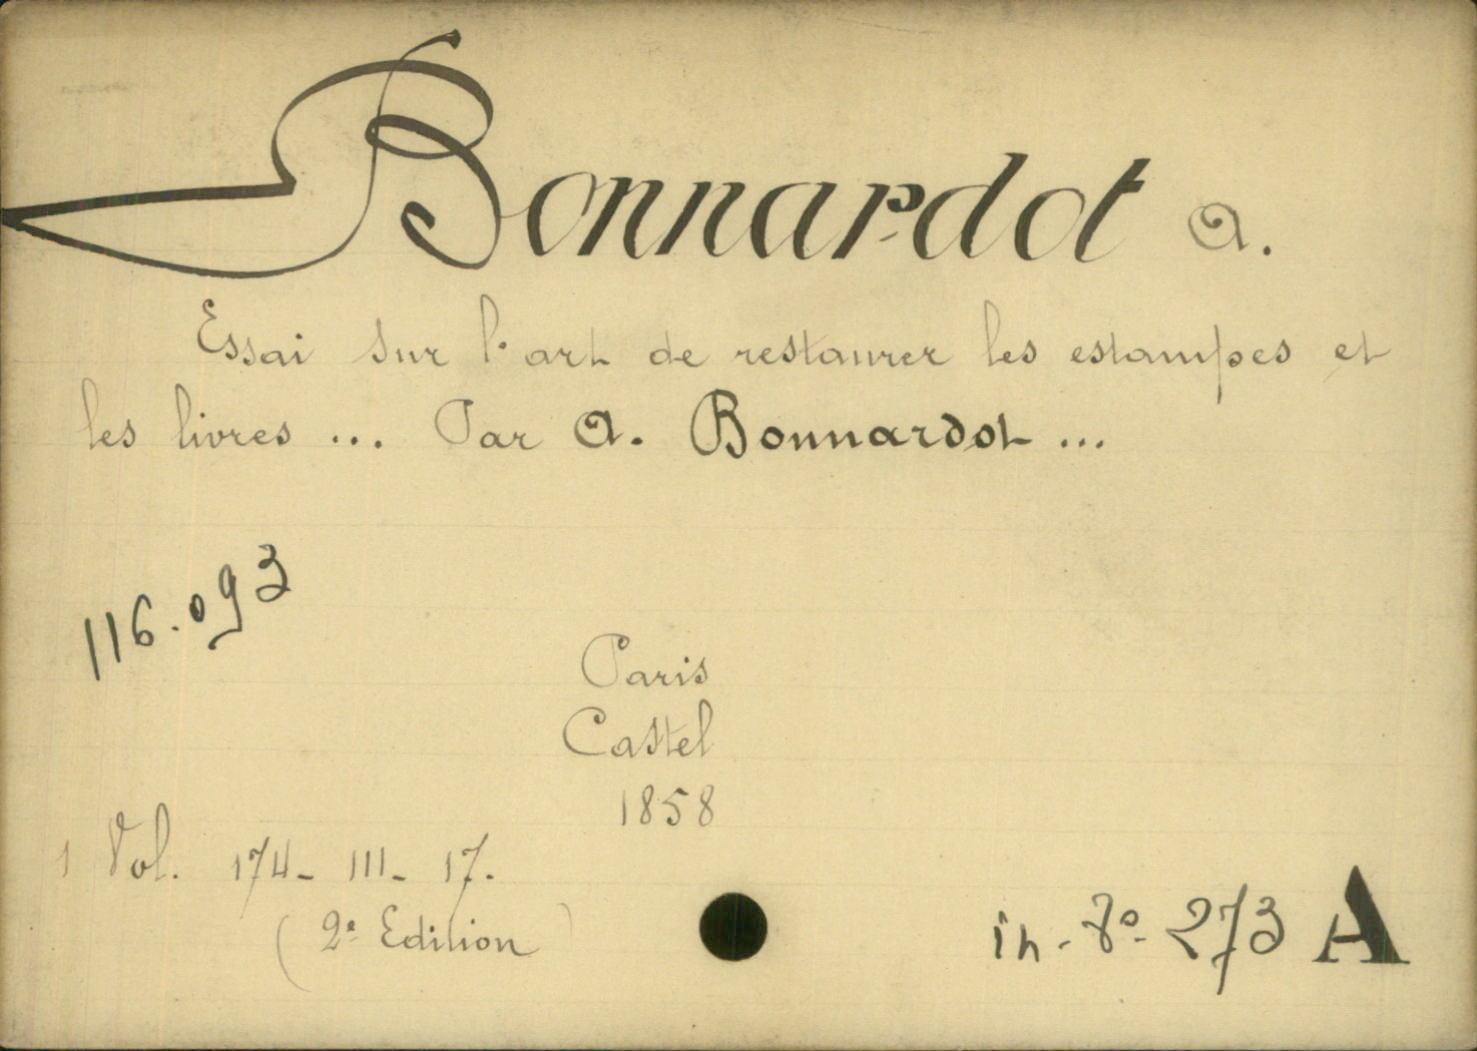 Bonnardot A.
Essai sur l'art de restaurer les estampes et
les livres ... Par A. Bonnardot ...
116.093
Paris
Castel
1858
1 Vol. 174- III- 17.
(2e Edition)
in-8o- 273 A